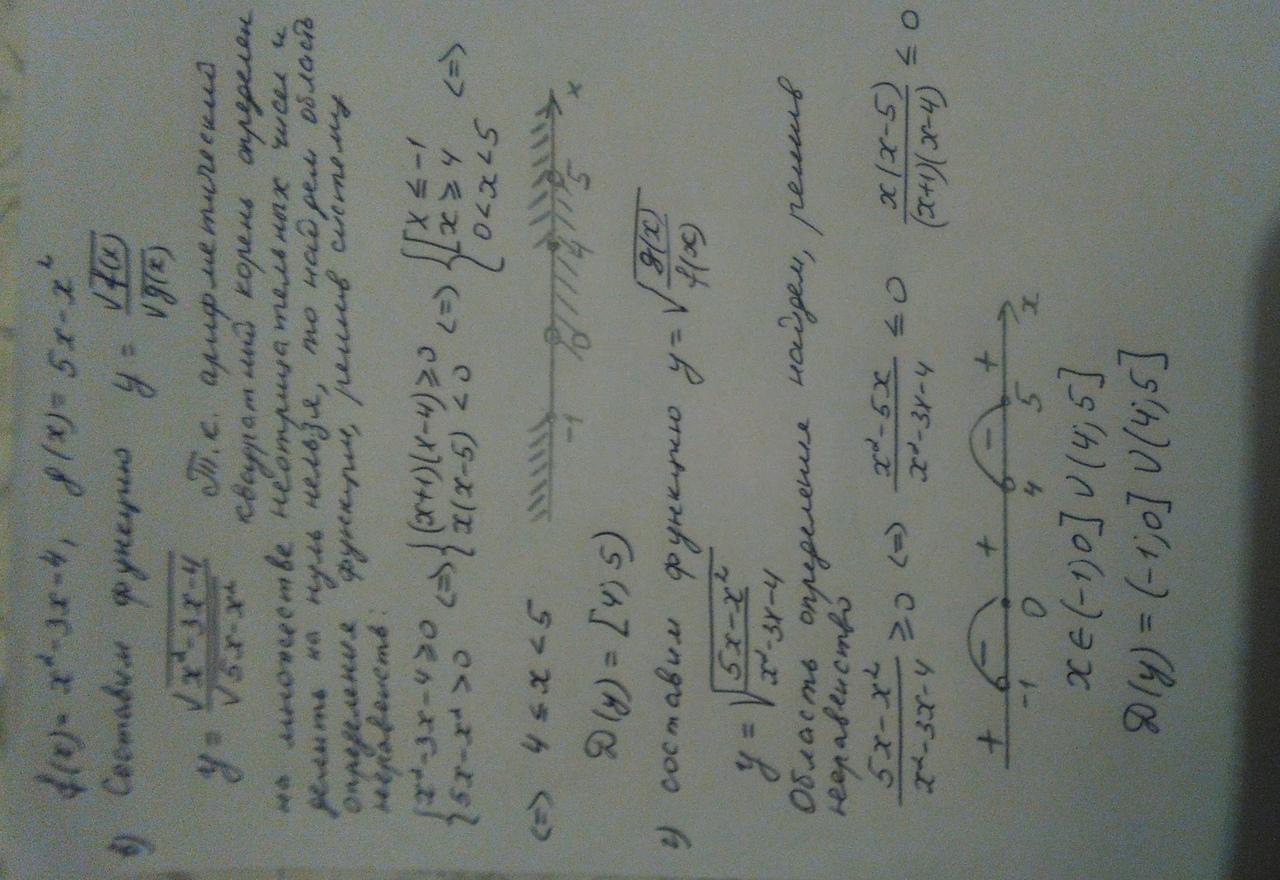 f(x) = x² - 3x - 4, g(x) = 5x - x²
в) Составим функцию y = √f(x) / √g(x)
y = √(x² - 3x - 4) / √(5x - x²) Т.к. арифметический
квадратный корень определен
на множестве неотрицательных чисел и
делить на нуль нельзя, то найдем область
определения функции, решив систему
неравенств:
{x² - 3x - 4 ≥ 0 {(x+1)(x-4) ≥ 0 {[x ≤ -1
{5x - x² > 0 <=> {x(x-5) < 0 <=> {[x ≥ 4 <=>
{0 < x < 5
-1 0 4 5 x
<=> 4 ≤ x < 5
D(y) = [4; 5)
г) составим функцию y = √(g(x)/f(x))
y = √((5x - x²)/(x² - 3x - 4))
Область определения найдем, решив
неравенство
(5x - x²)/(x² - 3x - 4) ≥ 0 <=> (x² - 5x)/(x² - 3x - 4) ≤ 0 x(x-5)/((x+1)(x-4)) ≤ 0
+ - + - +
-1 0 4 5 x
x ∈ (-1; 0] ∪ (4; 5]
D(y) = (-1; 0] ∪ (4; 5]